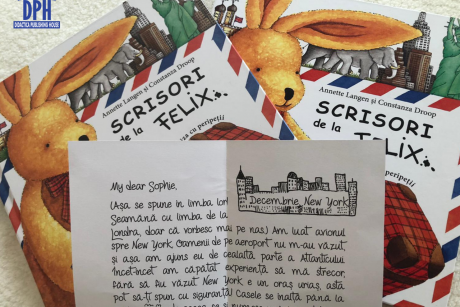 DPH
DIDACTICA PUBLISHING HOUSE
Annette Langen și Constanza Droop
SCRISORI
de la
FELIX
cu peripeții
Annette Langen și Constanza Droop
SCRISORI
de la
FELIX
My dear Sophie,
(Așa se spune în limba lor
Seamănă cu limba de la
Londra, doar că vorbesc mai pe nas) Am luat avionul
spre New York. Oamenii de pe aeroport nu m-au văzut
și așa am ajuns eu de cealaltă parte a Atlanticului
Încet-încet am căpătat experiență să mă strecor,
fără să fiu văzut New York, e un oraș uriaș, asta
pot să-ți spun cu siguranță! Casele se înalță până la
Decembrie, New York